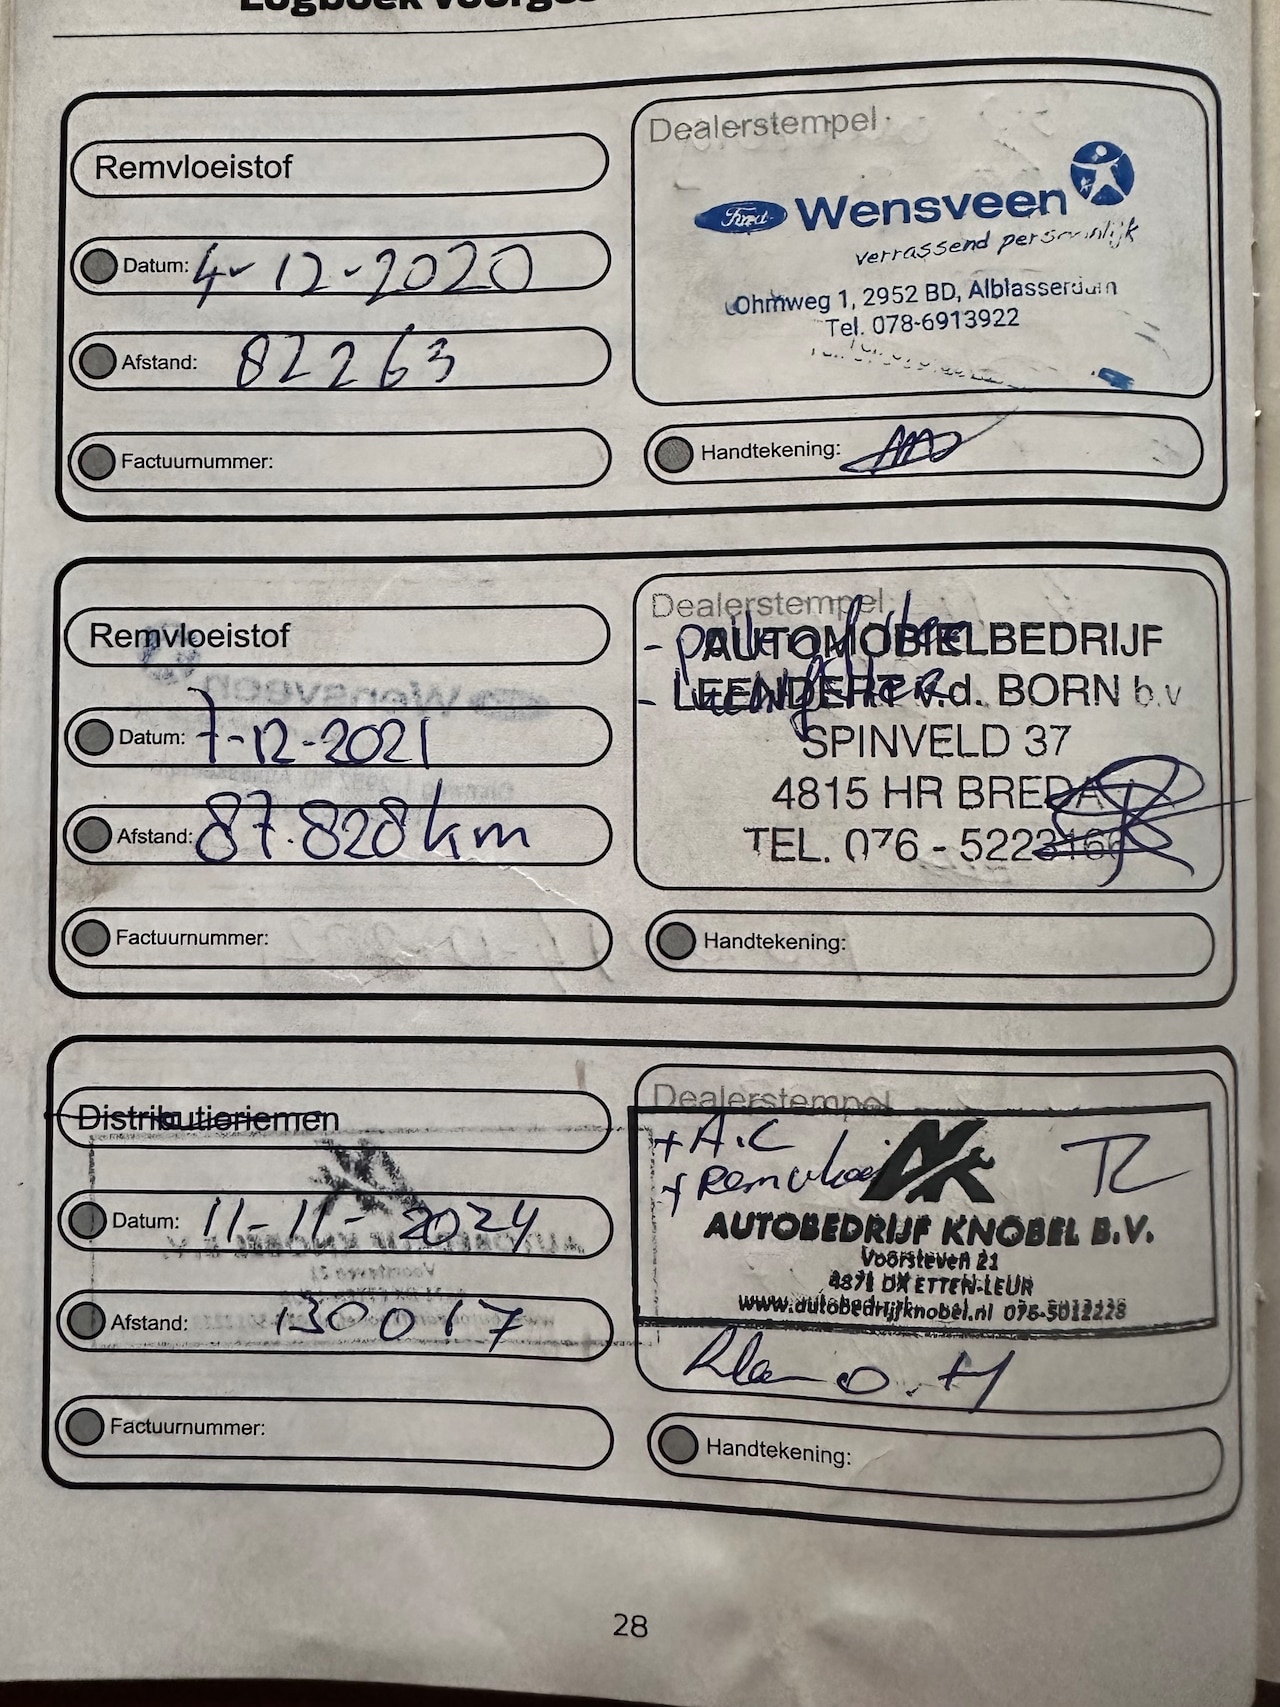 Remvloeistof
Datum: 4-12-2020
Afstand: 82263
Factuurnummer:
Dealerstempel
Ford Wensveen
verrassend persoonlijk
Ohmweg 1, 2952 BD, Alblasserdam
Tel. 078-6913922
Handtekening:
Remvloeistof
Datum: 7-12-2021
Afstand: 87.828 km
Factuurnummer:
Dealerstempel
AUTOMOBIELBEDRIJF
LEENDERT v.d. BORN b.v
SPINVELD 37
4815 HR BREDA
TEL. 076 - 5223166
Handtekening:
Distributieriemen
Datum: 11-11-2024
Afstand: 130017
Factuurnummer:
Dealerstempel
+ A.C
+ Remvloei
AUTOBEDRIJF KNOBEL B.V.
Voorsteven 21
4871 DX ETTEN-LEUR
www.autobedrijfknobel.nl 076-5012228
Handtekening:
28